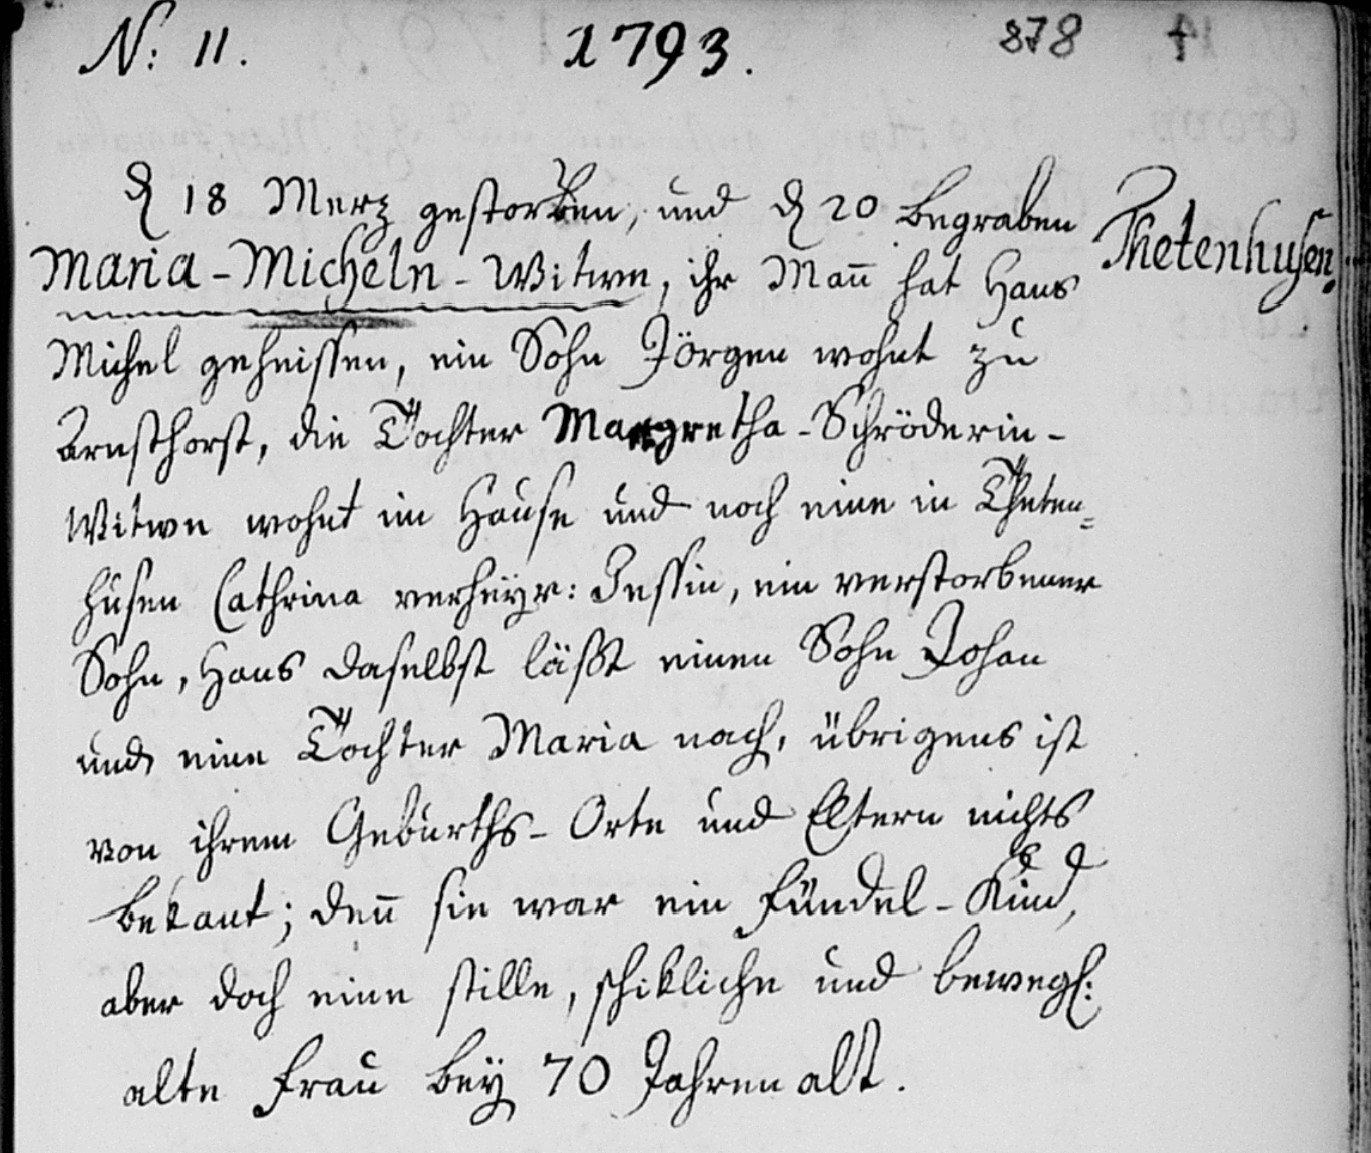 N: 11. 1793. 878
d 18 Merz gestorben, und d 20 begraben
Thetenhusen.
Maria-Micheln-Witwe, ihr Mañ hat Hans
Michel geheissen, ein Sohn Jörgen wohnt zu
Arnsthorst, die Tochter Margretha-Schröderin-
Witwe wohnt im Hause und noch eine in Theten=
husen Cathrina verheyr: Jessin, ein verstorbener
Sohn, Hans daselbst läßt einen Sohn Johan
und eine Tochter Maria nach, übrigens ist
von ihrem Geburths-Orte und Eltern nichts
bekant; deñ sie war ein Fündel-Kind,
aber doch eine stille, schikliche und bewegl:
alte Frau bey 70 Jahren alt.